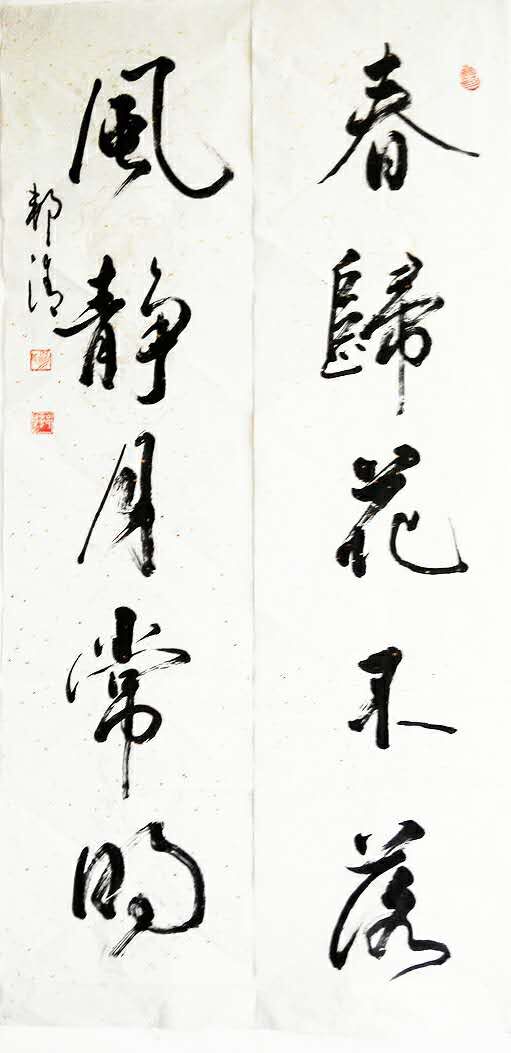 春歸花不落
風靜月常明
郝清